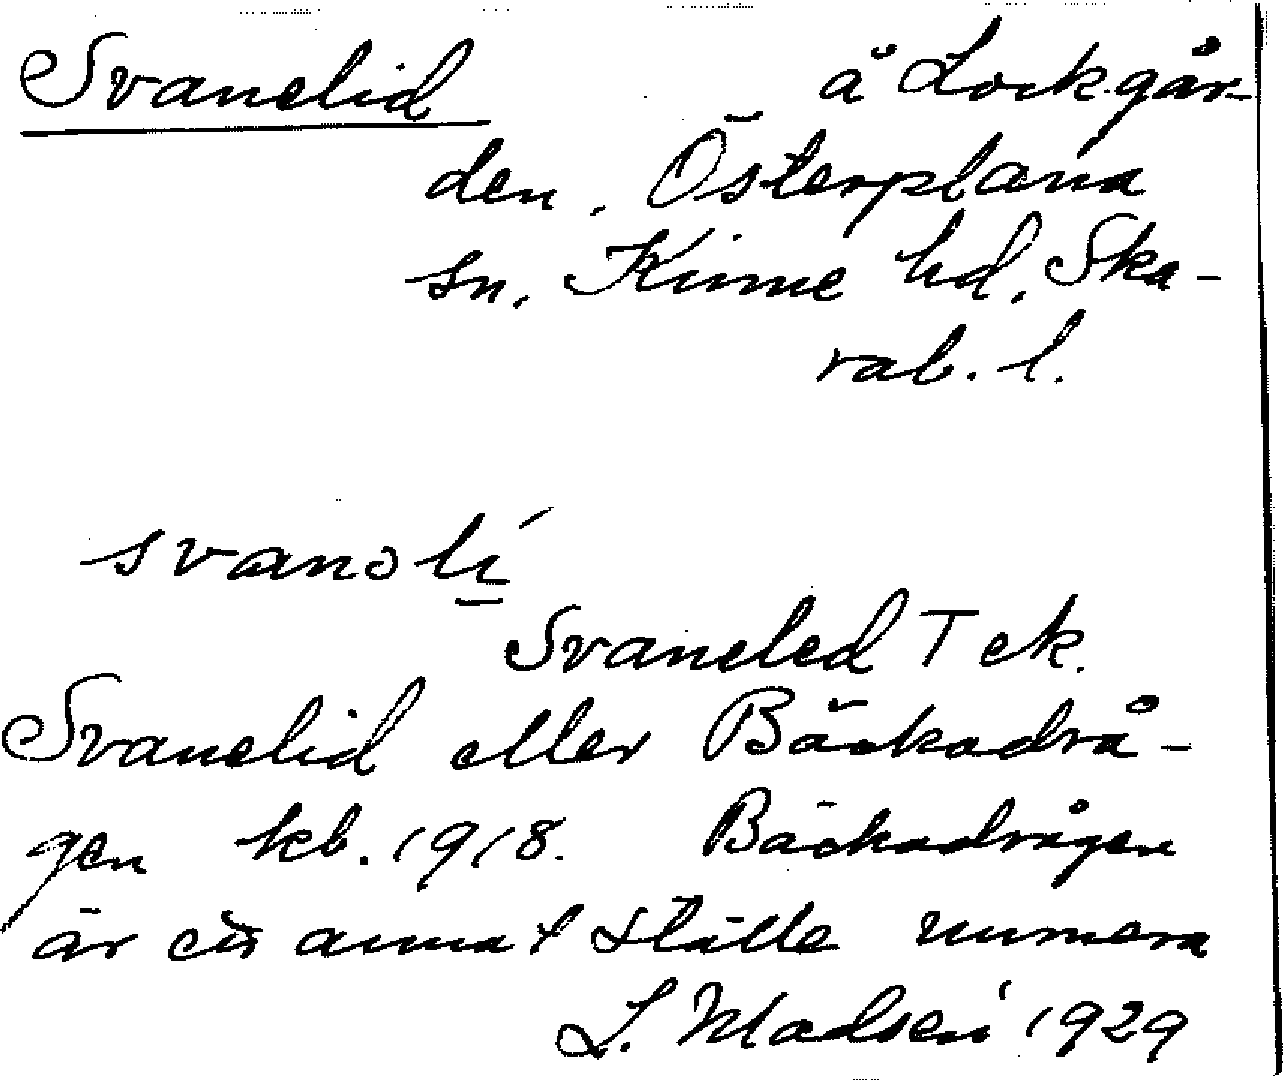 Svanelid å Lockgår-
den, Österplana
sn, Kinne hd, Ska-
rab. l.
svanolí
Svaneled T ek.
Svanelid eller Bäckadrå-
gen kb. 1918. Bäckadrågen
är ett annat ställe numera
L. Madsén 1929